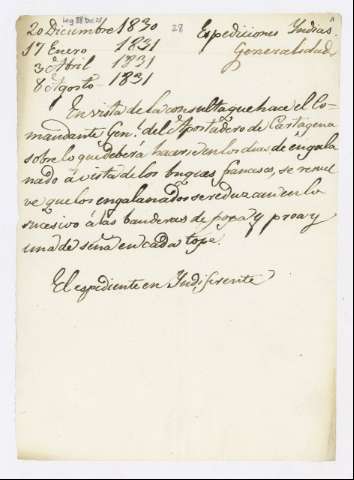 20 Diciembre 1830 28 Expediciones Yndias
17 Enero 1831 Generalidad
3 Abril 1831
8 Agosto 1831
En vista de la consulta que hace el Co-
mandante Gen.l del Apostadero de Cartagena
sobre lo que deberá hacerse en los dias de engala
nado á vista de los buques franceses, se resuel
ve que los engalanados se reduzcan en lo
sucesivo á las banderas de popa y proa y
una de seña en cada tope.
El espediente en Yndiferente